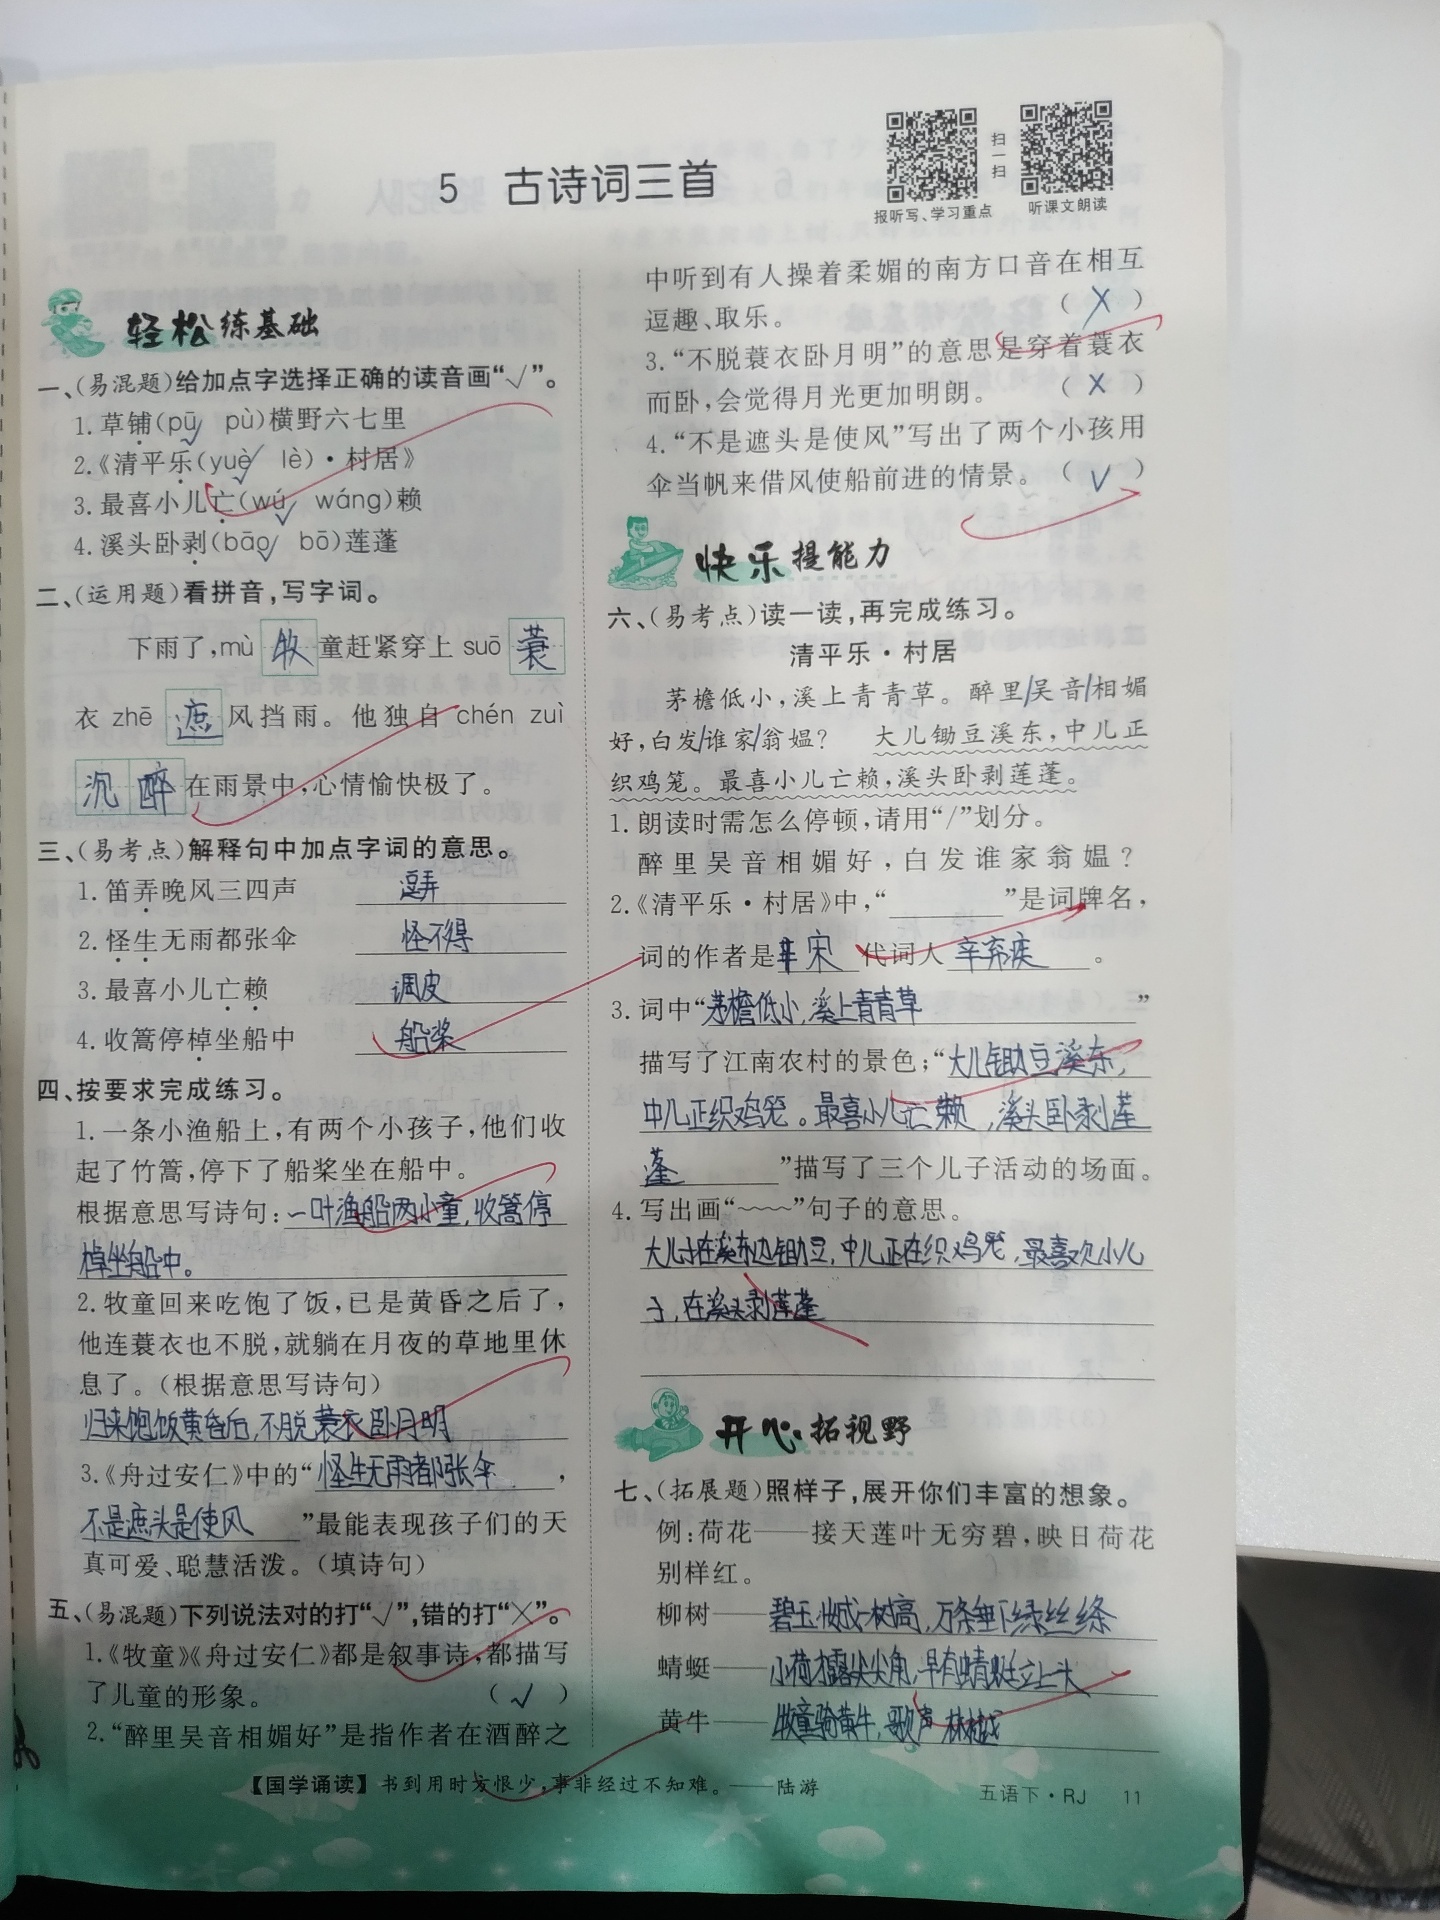 5 古诗词三首
扫一扫
报听写、学习重点
听课文朗读
轻松练基础
一、(易混题)给加点字选择正确的读音画“√”。
1.草铺(pū√ pù)横野六七里
2.《清平乐(yuè√ lè)·村居》
3.最喜小儿亡(wú√ wáng)赖
4.溪头卧剥(bāo√ bō)莲蓬
二、(运用题)看拼音,写字词。
下雨了,mù 牧 童赶紧穿上 suō 蓑
衣 zhē 遮 风挡雨。他独自 chén zuì
沉醉 在雨景中,心情愉快极了。
三、(易考点)解释句中加点字词的意思。
1.笛弄晚风三四声 逗弄
2.怪生无雨都张伞 怪不得
3.最喜小儿亡赖 调皮
4.收篙停棹坐船中 船桨
四、按要求完成练习。
1.一条小渔船上,有两个小孩子,他们收
起了竹篙,停下了船桨坐在船中。
根据意思写诗句:一叶渔船两小童,收篙停
棹坐船中。
2.牧童回来吃饱了饭,已是黄昏之后了,
他连蓑衣也不脱,就躺在月夜的草地里休
息了。(根据意思写诗句)
归来饱饭黄昏后,不脱蓑衣卧月明
3.《舟过安仁》中的“怪生无雨都张伞,
不是遮头是使风”最能表现孩子们的天
真可爱、聪慧活泼。(填诗句)
五、(易混题)下列说法对的打“√”,错的打“×”。
1.《牧童》《舟过安仁》都是叙事诗,都描写
了儿童的形象。 (√)
2.“醉里吴音相媚好”是指作者在酒醉之
中听到有人操着柔媚的南方口音在相互
逗趣、取乐。 (×)
3.“不脱蓑衣卧月明”的意思是穿着蓑衣
而卧,会觉得月光更加明朗。 (×)
4.“不是遮头是使风”写出了两个小孩用
伞当帆来借风使船前进的情景。 (√)
快乐提能力
六、(易考点)读一读,再完成练习。
清平乐·村居
茅檐低小,溪上青青草。醉里/吴音/相媚
好,白发/谁家/翁媪? 大儿锄豆溪东,中儿正
织鸡笼。最喜小儿亡赖,溪头卧剥莲蓬。
1.朗读时需怎么停顿,请用“/”划分。
醉里吴音相媚好,白发谁家翁媪?
2.《清平乐·村居》中,“ ”是词牌名,
词的作者是宋代词人辛弃疾。
3.词中“茅檐低小,溪上青青草”
描写了江南农村的景色;“大儿锄豆溪东,
中儿正织鸡笼。最喜小儿亡赖,溪头卧剥莲
蓬”描写了三个儿子活动的场面。
4.写出画“﹏﹏”句子的意思。
大儿子在溪东边锄豆,中儿正在织鸡笼,最喜欢小儿
子,在溪头剥莲蓬
开心拓视野
七、(拓展题)照样子,展开你们丰富的想象。
例:荷花——接天莲叶无穷碧,映日荷花
别样红。
柳树——碧玉妆成一树高,万条垂下绿丝绦
蜻蜓——小荷才露尖尖角,早有蜻蜓立上头
黄牛——牧童骑黄牛,歌声林樾
【国学诵读】书到用时方恨少,事非经过不知难。——陆游
五语下·RJ 11